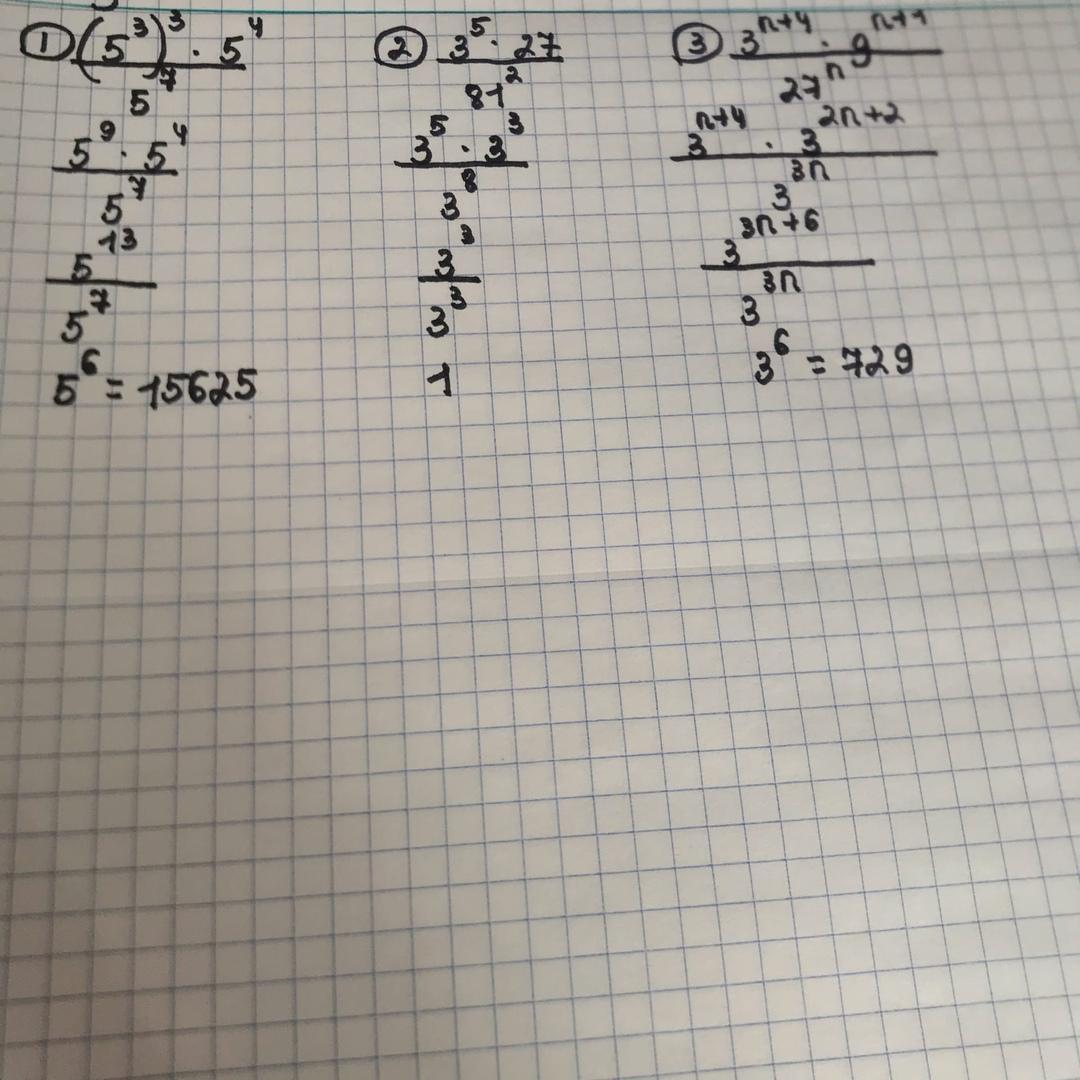 ① (5³)³ · 5⁴
5⁷
5⁹ · 5⁴
5⁷
5¹³
5⁷
5⁶ = 15625
② 3⁵ · 27
81²
3⁵ · 3³
3⁸
3³
3³
1
③ 3ⁿ⁺⁴ · 9ⁿ⁺¹
27ⁿ
3ⁿ⁺⁴ · 3²ⁿ⁺²
3³ⁿ
3³ⁿ⁺⁶
3³ⁿ
3⁶ = 729